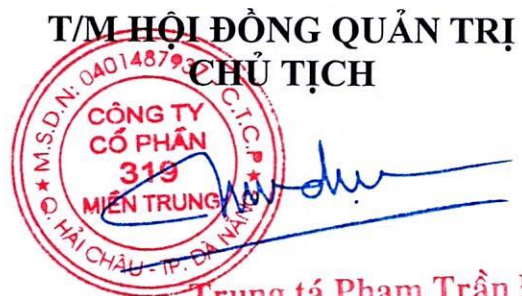 T/M HỘI ĐỒNG QUẢN TRỊ
CHỦ TỊCH
M.S.D.N: 0401487937 - C.T.C.P
CÔNG TY
CỔ PHẦN
319
MIỀN TRUNG
Q. HẢI CHÂU - TP. ĐÀ NẴNG
Trung tá Phạm Trần